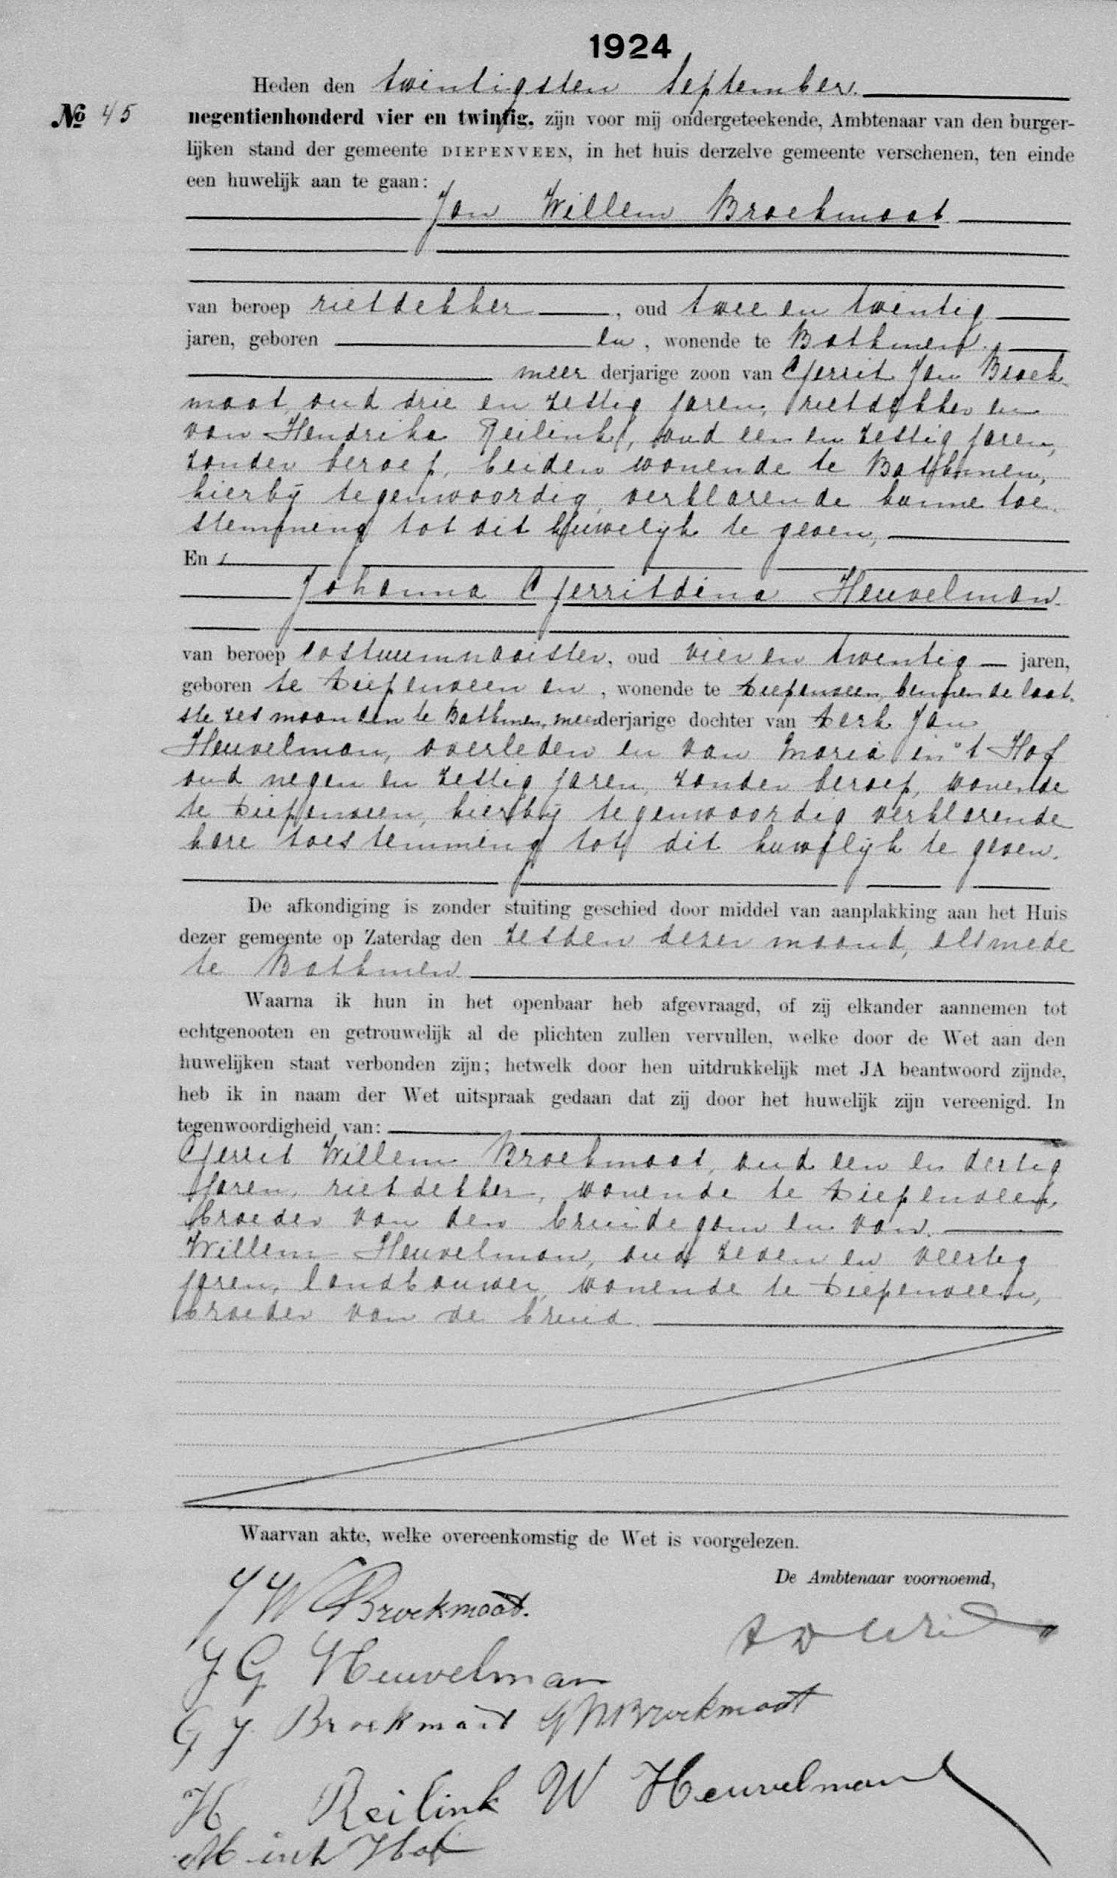 1924
Heden den twintigsten September.
№ 45
negentienhonderd vier en twintig, zijn voor mij ondergeteekende, Ambtenaar van den burger-
lijken stand der gemeente DIEPENVEEN, in het huis derzelve gemeente verschenen, ten einde
een huwelijk aan te gaan:
Jan Willem Broekmaat
van beroep rietdekker, oud twee en twintig
jaren, geboren en, wonende te Bathmen,
meer derjarige zoon van Gerrit Jan Broek
maat, oud drie en zestig jaren, rietdekker en
van Hendrika Reilink, oud een en zestig jaren,
zonder beroep, beiden wonende te Bathmen,
hierbij tegenwoordig verklarende hunne toe
stemming tot dit huwelijk te geven,
En
Johanna Gerritdina Heuvelman
van beroep costuumnaaister, oud vier en twintig jaren,
geboren te Diepenveen en, wonende te Diepenveen, binnen de laat
ste zes maanden te Bathmen, meerderjarige dochter van Derk Jan
Heuvelman, overleden en van Maria in 't Hof
oud negen en zestig jaren, zonder beroep, wonende
te Diepenveen, hierbij tegenwoordig verklarende
hare toestemming tot dit huwelijk te geven.
De afkondiging is zonder stuiting geschied door middel van aanplakking aan het Huis
dezer gemeente op Zaterdag den zesden dezer maand, alsmede
te Bathmen
Waarna ik hun in het openbaar heb afgevraagd, of zij elkander aannemen tot
echtgenooten en getrouwelijk al de plichten zullen vervullen, welke door de Wet aan den
huwelijken staat verbonden zijn; hetwelk door hen uitdrukkelijk met JA beantwoord zijnde,
heb ik in naam der Wet uitspraak gedaan dat zij door het huwelijk zijn vereenigd. In
tegenwoordigheid van:
Gerrit Willem Broekmaat, oud een en dertig
jaren, rietdekker, wonende te Diepenveen,
broeder van den bruidegom en van
Willem Heuvelman, oud zeven en veertig
jaren, landbouwer, wonende te Diepenveen,
broeder van de bruid.
Waarvan akte, welke overeenkomstig de Wet is voorgelezen.
De Ambtenaar voornoemd,
J W Broekmaat.
J G Heuvelman
G J Broekmaat GW Broekmaat
H Reilink W Heuvelman
M in t Hof